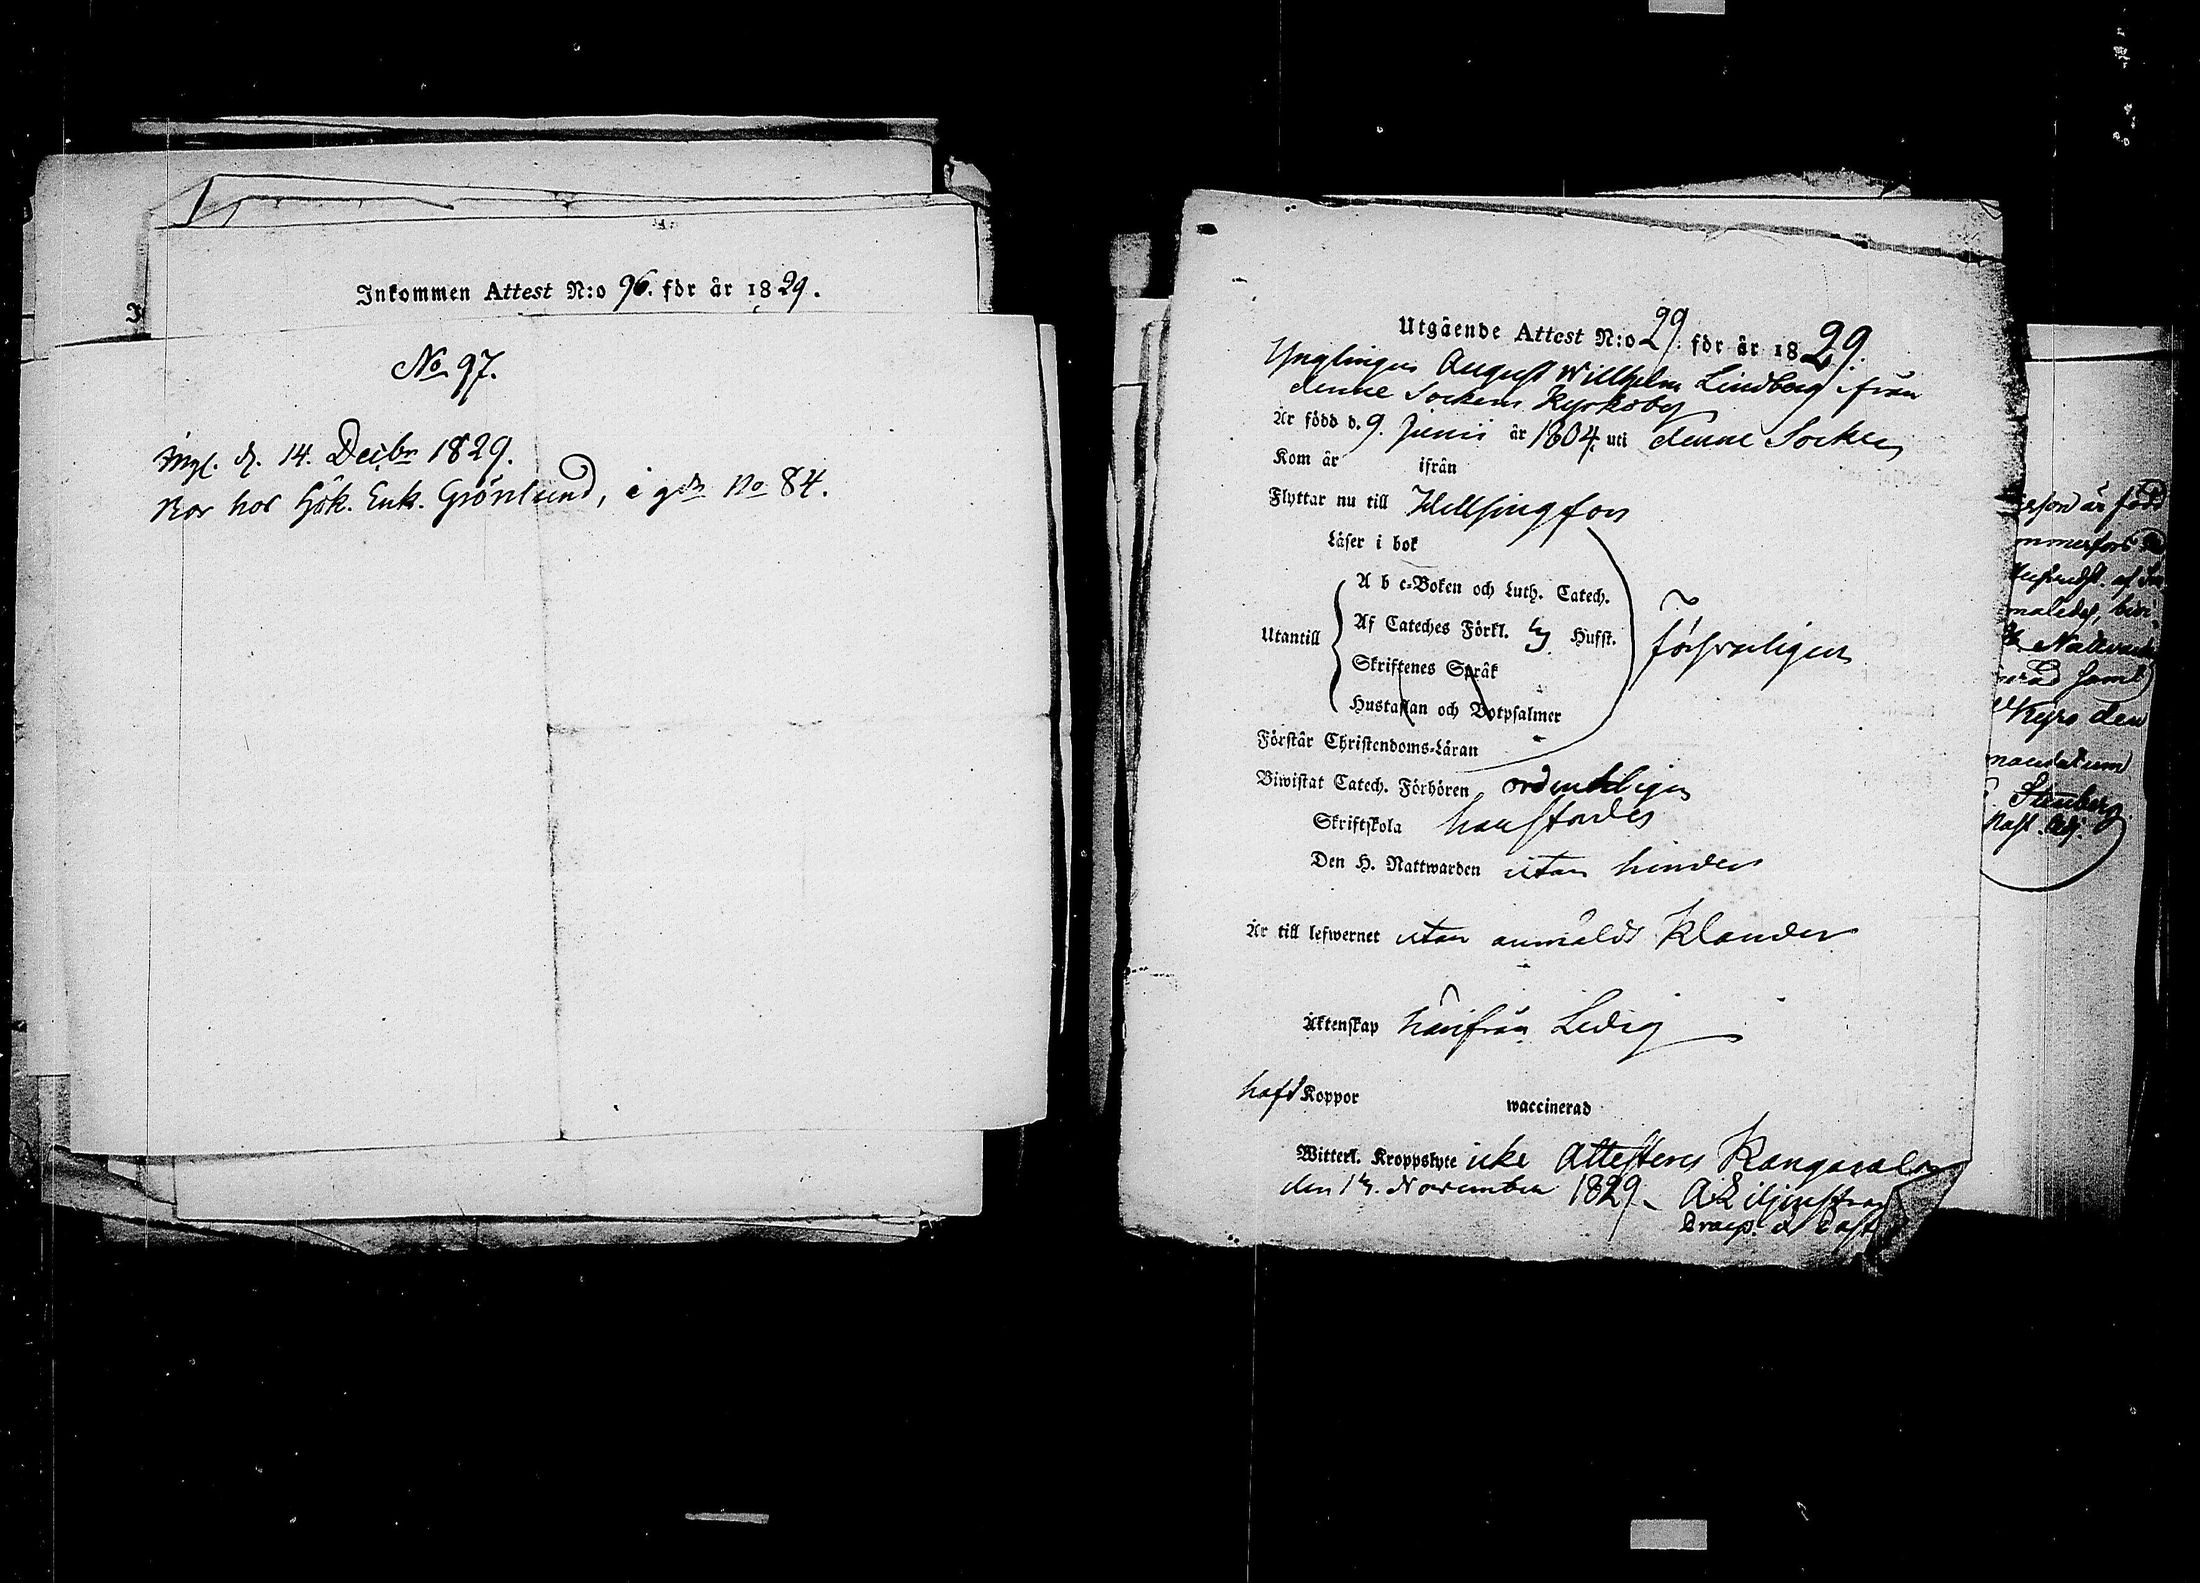 Inkommen Attest N:o 96. för år 1829.
No 97.
Ingl. d. 14. Decbr 1829.
Bor hos Hök. Enk. Grönlund, i gdn No 84.
Utgående Attest N:o 29. för år 1829.
Ynglingen August Wilhelm Lindberg ifrån
denne Sockens Kyrkoby
Är född d. 9. Junii år 1804. uti denne Socken
Kom år ifrån
Flyttar nu till Hellsingfors
Läser i bok
A b c-Boken och Luth. Catech.
Utantill Af Cateches Förkl. Husst. försvarligen
Skriftenes Språk
Hustaflan och Botpsalmer
Förstår Christendoms-Läran
Biwistat Catech. Förhören ordentligen
Skriftskola
Den H. Nattwarden utan hinder
Är till lefwernet utan anmäldt klander
Äktenskap härifrån Ledig
haft Koppor waccinerad
Witterl. Kroppslyte icke Attesteres Kangasala
den 17. November 1829
erson är född
ommerfors
maledes, biwi-
Nattvard
samt
Kyro den
mandatum
Stenberg.
Past. Adj.